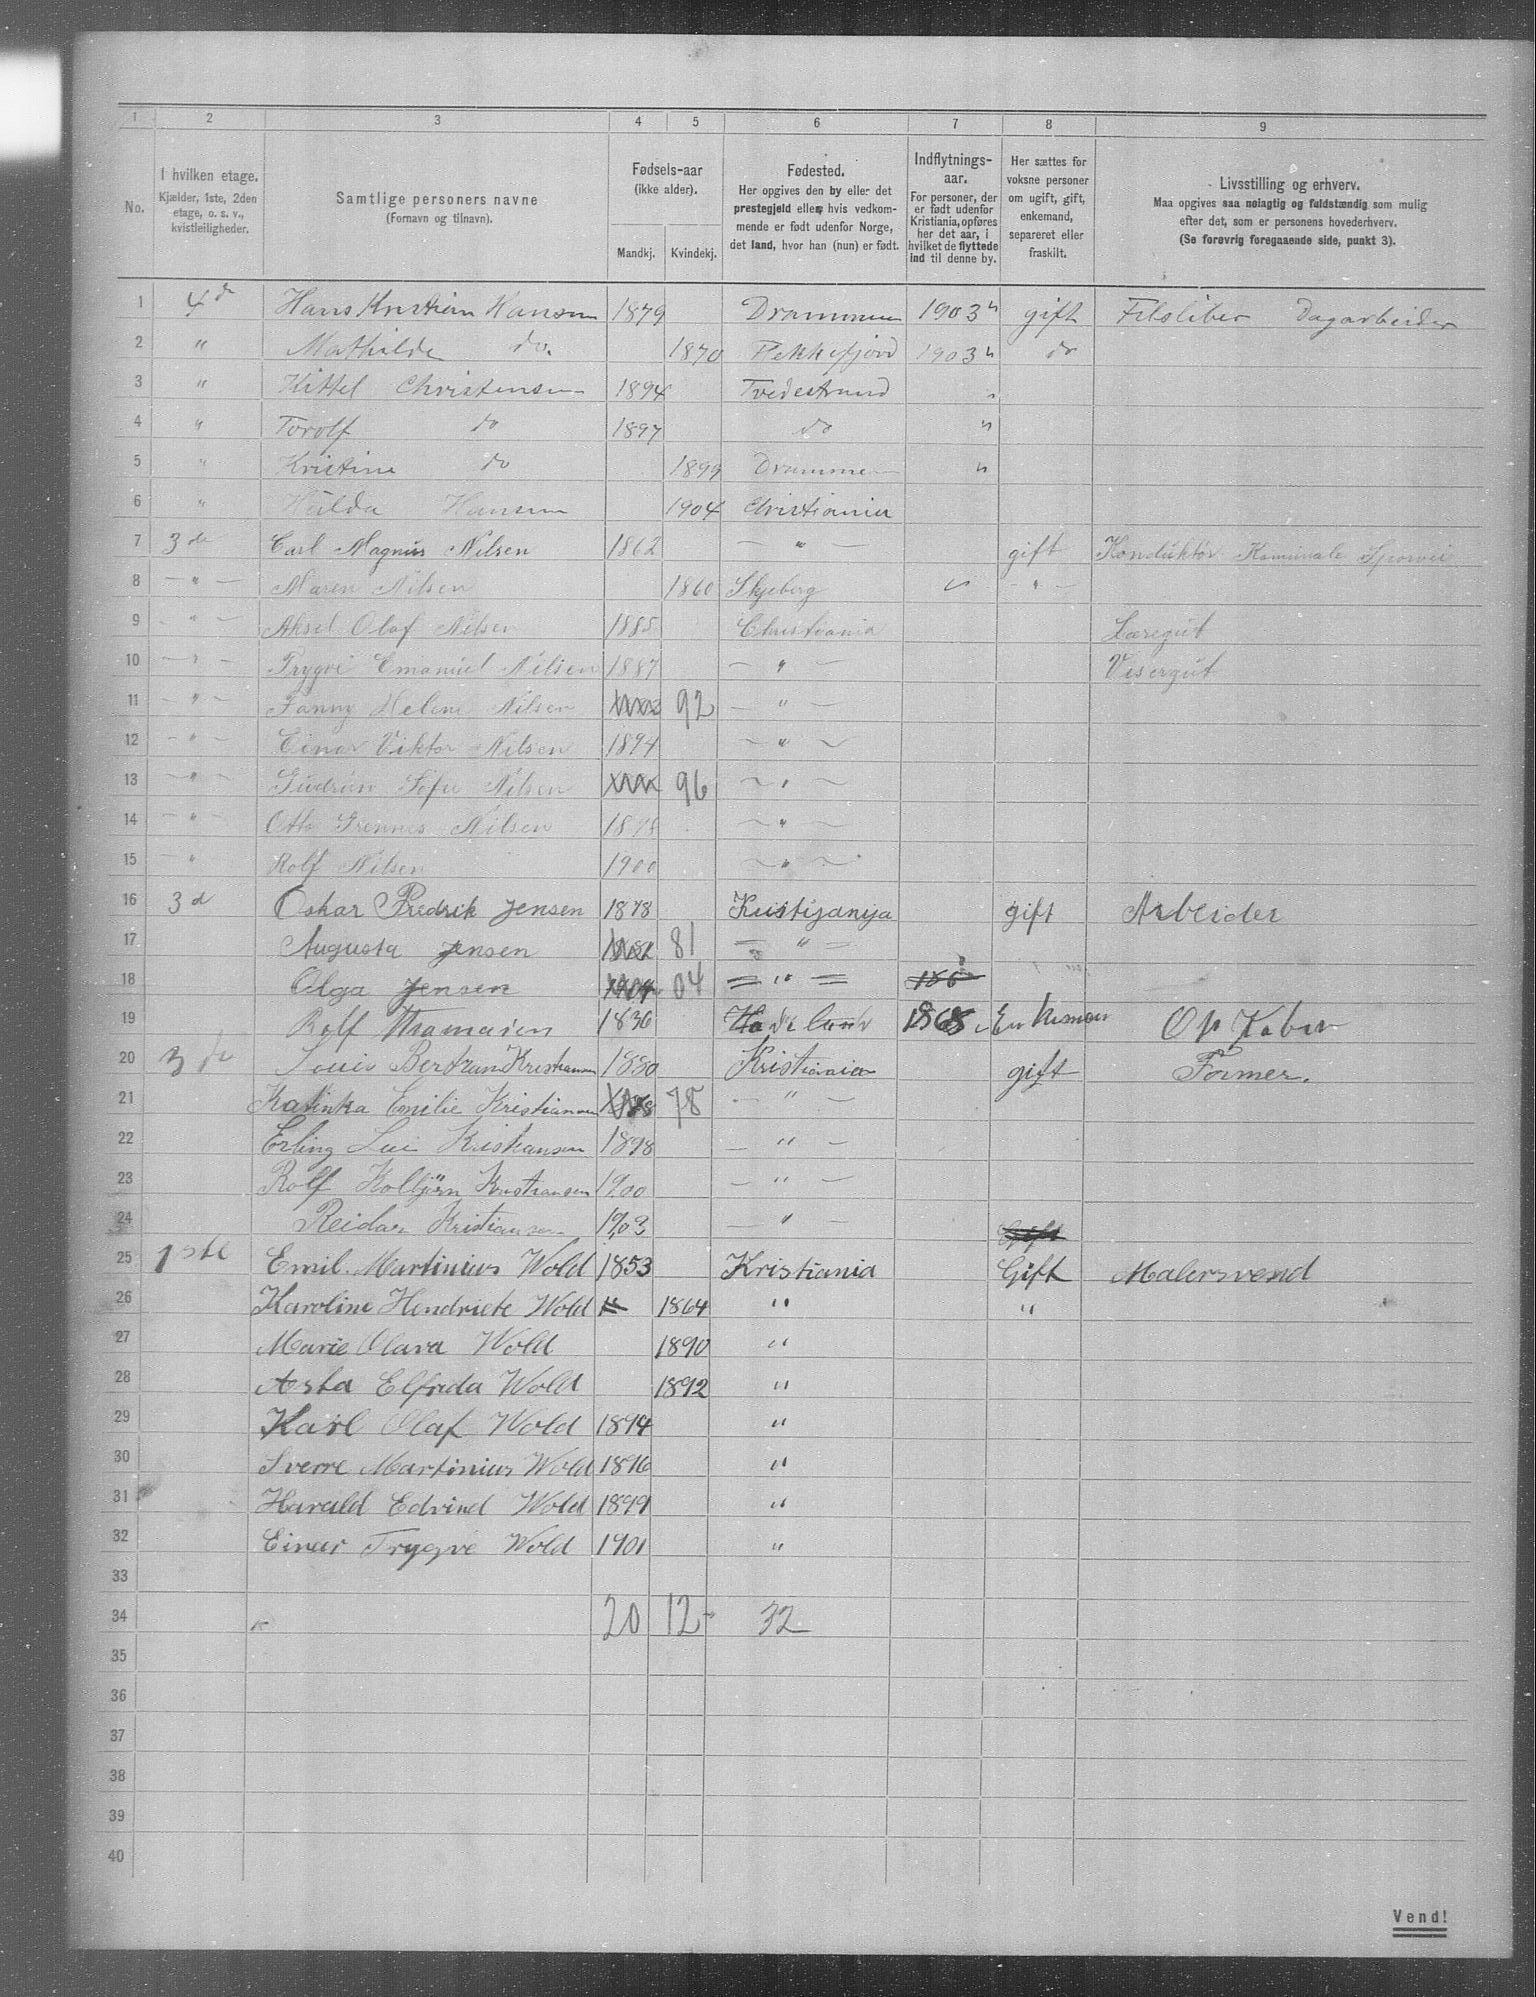 1 2 3 4 5 6 7 8 9
No.
I hvilken etage.
Kjælder, 1ste, 2den
etage, o. s. v.,
kvistleiligheder.
Samtlige personers navne
(Fornavn og tilnavn).
Fødsels-aar
(ikke alder).
Mandkj. Kvindekj.
Fødested.
Her opgives den by eller det
prestegjeld eller, hvis vedkom-
mende er født udenfor Norge,
det land, hvor han (hun) er født.
Indflytnings-
aar.
For personer, der
er født udenfor
Kristiania, opføres
her det aar, i
hvilket de flyttede
ind til denne by.
Her sættes for
voksne personer
om ugift, gift,
enkemand,
separeret eller
fraskilt.
Livsstilling og erhverv.
Maa opgives saa nøiagtig og fuldstændig som mulig
efter det, som er personens hovederhverv.
(Se forøvrig foregaaende side, punkt 3).
1 4d Hans Kristian Hansen 1879 Drammen 1903 " gift Filsliber Dagarbeider
2 " Mathilde do. 1870 Flekkefjord 1903 " do
3 " Kittel Christensen 1894 Tvedestrand "
4 " Torolf do 1897 do "
5 " Kristine do 1899 Drammen "
6 " Hilda Hansen 1904 Christiania
7 3de Carl Magnus Nilsen 1862 — " — gift Konduktør Komunale Sporvei
8 — " — Maren Nilsen 1860 Skjeberg — " —
9 — " — Aksel Olaf Nilsen 1885 Christiania Læregut
10 — " — Trygvi Emanuel Nilsen 1887 — " — Visergut
11 — " — Fanny Helene Nilsen 92 — " —
12 — " — Einar Viktor Nilsen 1894 — " —
13 — " — Gudrun Sofie Nilsen 96 — " —
14 — " — Otto Nilsen 1898 — " —
15 — " Rolf Nilsen 1900 — " —
16 3d Oskar Fredrik Jensen 1878 Kristijanija gift Arbeider
17 Augusta Jensen 81 — " —
18 Olga Jensen 1904 04 = " =
19 Rolf 1836 Hadeland 1868 Enkeman
20 3de Louis Bertram Kristiansen 1880 Kristiania gift Former.
21 Katinka Emilie Kristiansen 1878 78 — " —
22 Erling Lui Kristiansen 1898 — " —
23 Rolf Kolbjörn Kristiansen 1900 — " —
24 Reidar Kristiansen 1903 — " — Gift
25 1ste Emil Martinius Wold 1853 Kristiania Gift Malersvend
26 Karoline Hendriete Wold 1864 " "
27 Marie Olava Wold 1890 "
28 Asta Elfrida Wold 1892 "
29 Karl Olaf Wold 1894 "
30 Sverre Martinius Wold 1896 "
31 Harald Edvind Wold 1899 "
32 Einar Trygve Wold 1901 "
33
34 20 12 32
35
36
37
38
39
40
Vend!